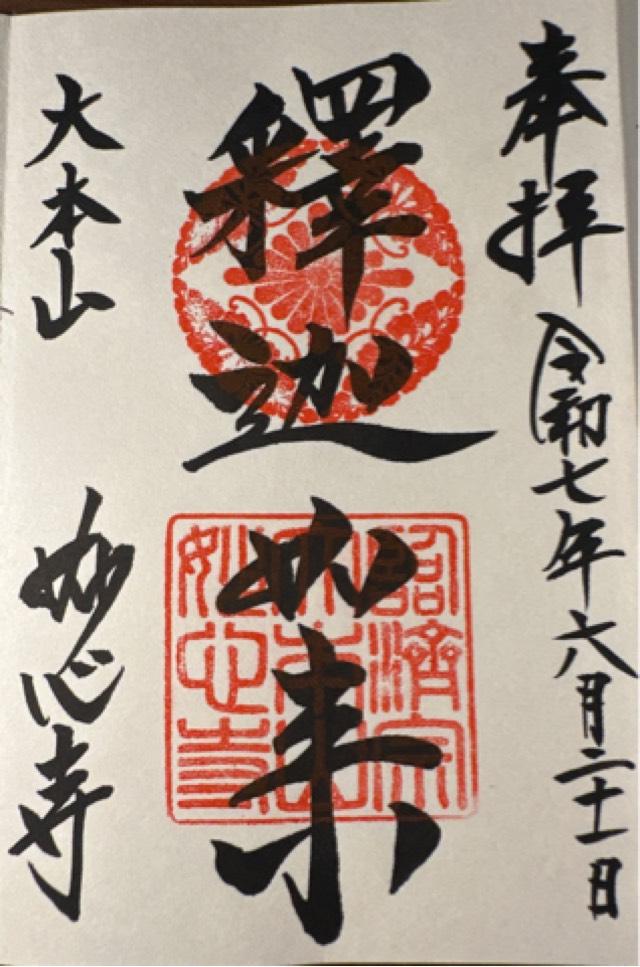 奉拝 令和七年六月二十一日
釋迦如来
臨済宗
大本山
妙心寺
大本山 妙心寺